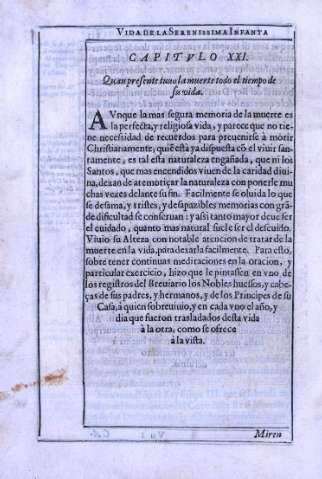 VIDA DE LA SERENISSIMA INFANTA
CAPITVLO XXI.
Quan presente tuuo la muerte todo el tiempo de
su vida.
AVnque la mas segura memoria de la muerte es
la perfecta, y religiosa vida, y parece que no tie-
ne necessidad de recuerdos para preuenirse à morir
Christianamente, quiē esta ya dispuesta cō el viuir san-
tamente, es tal esta naturaleza engañada, que ni los
Santos, que mas encendidos viuen de la caridad diui-
na, dexan de atemorizar la naturaleza con ponerle mu-
chas vezes delante su fin. Facilmente se oluida lo que
se desama, y tristes, y desapazibles memorias con grā-
de dificultad se conseruan: y assi tanto mayor deue ser
el cuidado, quanto mas natural suele ser el descuido.
Viuio su Alteza con notable atencion de tratar de la
muerte en la vida, para dexarla facilmente. Para esto,
sobre tener continuas meditaciones en la oracion, y
particular exercicio, hizo que le pintassen en vno de
los registros del Breuiario los Nobles huessos, y cabe-
ças de sus padres, y hermanos, y de los Principes de su
Casa, à quien sobreuiuio, y en cada vno el año, y
dia que fueron trasladados desta vida
à la otra, como se ofrece
à la vista.
Miren